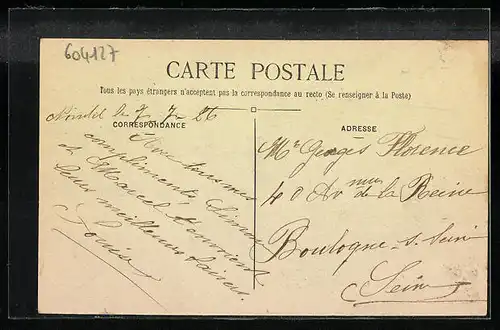 604127
CARTE POSTALE
Tous les pays étrangers n'acceptent pas la correspondance au recto (Se renseigner à la Poste)
le 7-7-26
CORRESPONDANCE
Avec tous mes
compliments,
et Marcel
leurs meilleurs baisers.
Louise
ADRESSE
Mr Georges Florence
40 Avnue de la Reine
Boulogne-s-Seine
Seine